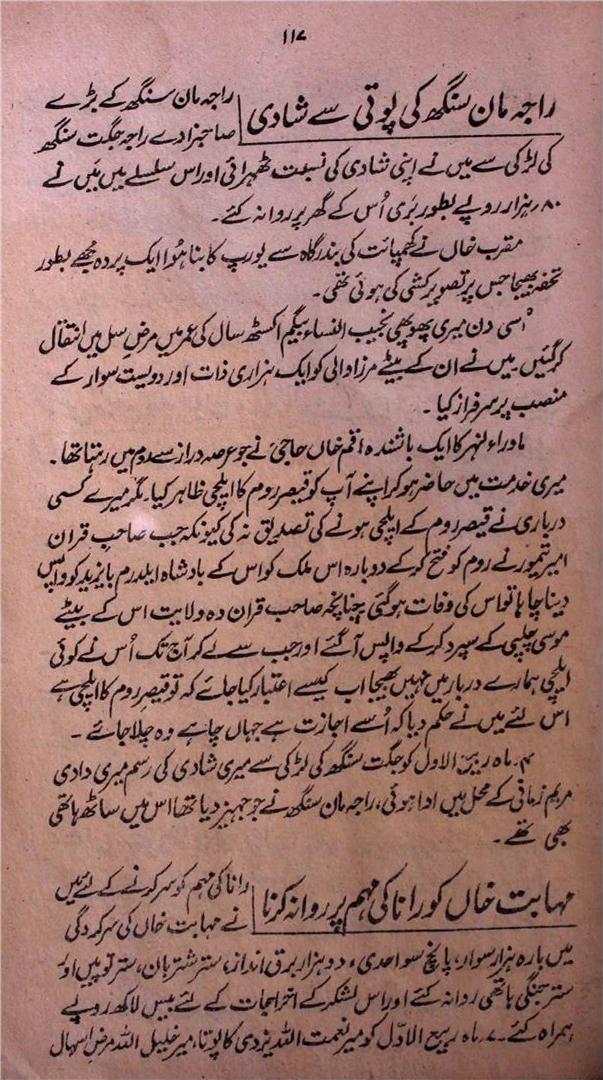 ۱۱۷
راجہ مان سنگھ کی پوتی سے شادی
راجہ مان سنگھ کے بڑے
صاحبزادے راجہ جگت سنگھ
کی لڑکی سے میں نے اپنی شادی کی نسبت ٹھہرائی اور اس سلسلے میں میں نے
۸۰ ہزار روپے بطور بَری اُس کے گھر پر روانہ کئے۔
مقرب خاں نے کھمپائت کی بندرگاہ سے یورپ کا بنا ہُوا ایک پردہ مجھے بطور
تحفہ بھیجا جس پر تصویر کشی کی ہوئی تھی۔
اُسی دن میری پھوپھی نجیب النساء بیگم اکسٹھ سال کی عمر میں مرضِ سل میں انتقال
کر گئیں۔ میں نے ان کے بیٹے مرزا والی کو ایک ہزاری ذات اور دو یست سوار کے
منصب پر سرفراز کیا۔
ماوراء لنہر کا ایک باشندہ اقم خاں حاجی نے جو عرصہ دراز سے روم میں رہتا تھا۔
میری خدمت میں حاضر ہو کر اپنے آپ کو قیصرِ روم کا ایلچی ظاہر کیا۔ مگر میرے کسی
درباری نے قیصر روم کے ایلچی ہونے کی تصدیق نہ کی کیونکہ جب صاحبِ قران
امیر تیمور نے روم کو فتح کر کے دوبارہ اس ملک کو اس کے بادشاہ ایلدرم بایزید کو واپس
دینا چاہا تو اس کی وفات ہو گئی چنانچہ صاحب قران وہ ولایت اس کے بیٹے
موسی چلپی کے سپرد کر کے واپس آگئے اور جب سے لے کر آج تک اُس نے کوئی
ایلچی ہمارے دربار میں نہیں بھیجا اب کیسے اعتبار کیا جائے کہ تو قیصر روم کا ایلچی ہے
اس لئے میں نے حکم دیا کہ اُسے اجازت ہے جہاں چاہے وہ چلا جائے۔
۴۔ ماہ ربیع الاول کو جگت سنگھ کی لڑکی سے میری شادی کی رسم میری دادی
مریم زمانی کے محل میں ادا ہوئی، راجہ مان سنگھ نے جو جہیز دیا تھا اس میں ساٹھ ہاتھی
بھی تھے۔
مہابت خاں کو رانا کی مہم پر روانہ کرنا
رانا کی مہم کو سر کرنے کے لئے میں
نے مہابت خاں کی سرکردگی
میں بارہ ہزار سوار، پانچ سو احدی، دو ہزار برق انداز، ستر شتر بان، ستر توپیں اور
ستر جنگی ہاتھی روانہ کئے اور اس لشکر کے اخراجات کے لئے بیس لاکھ روپے
ہمراہ کئے۔ ۷۔ ماہ ربیع الاوّل کو میر نعمت اللہ یزدی کا پوتا، میر خلیل اللہ مرضِ اسہال